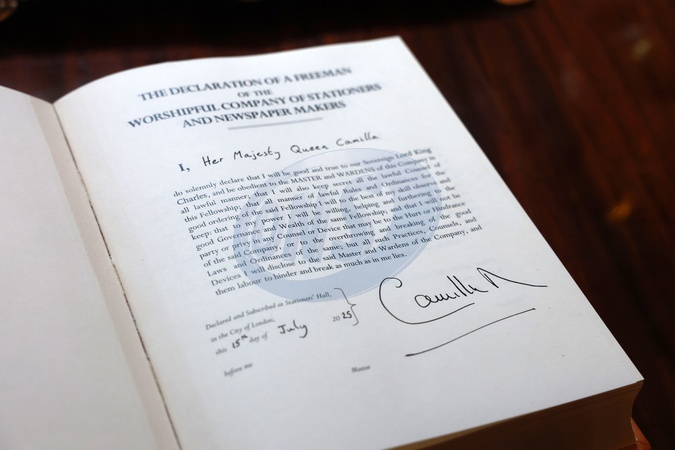 THE DECLARATION OF A FREEMAN
OF THE
WORSHIPFUL COMPANY OF STATIONERS
AND NEWSPAPER MAKERS
I, Her Majesty Queen Camilla
do solemnly declare that I will be good and true to our Sovereign Lord King
Charles, and be obedient to the MASTER and WARDENS of this Company in
all lawful manner; that I will also keep secret all the lawful Counsel of
this Fellowship; that all manner of lawful Rules and Ordinances for the
good ordering of the said Fellowship I will to the best of my skill observe and
keep: that to my power I will be willing, helping and furthering to the
good Governance and Wealth of the same Fellowship; and that I will not be
party or privy in any Counsel or Device that may be to the Hurt or Hindrance
of the said Company, or the overthrowing and breaking of the good
Laws and Ordinances of the same; but all such Practices, Counsels, and
Devices I will disclose to the said Master and Wardens of the Company, and
them labour to hinder and break as much as in me lies.
Declared and Subscribed at Stationers' Hall,
in the City of London,
this 15th day of July 2025
Camilla R
before me